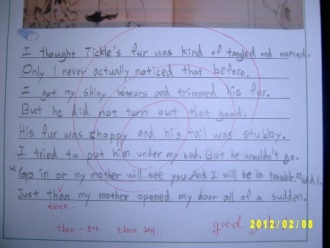 I thought Tickle's fur was kind of tangled and matted.
Only I never actually noticed that before.
I got my skiny scissors and trimmed his fur.
But he did not turn out that good.
His fur was choppy and his tail was stubby.
I tried to put him under my bed. But he wouldn't go.
"Go in or my mother will see you. And I will be in trouble."
Just than my mother opened my door all of a sudden.
then
then
than
good
2012/02/06